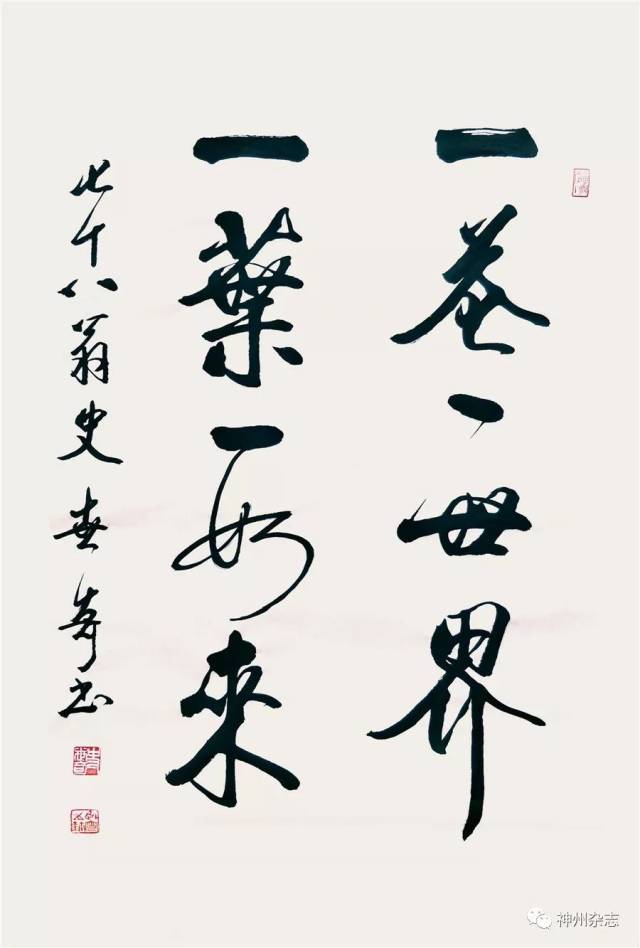 一花一世界
一葉一如來
七十八翁史世奇书
神州杂志